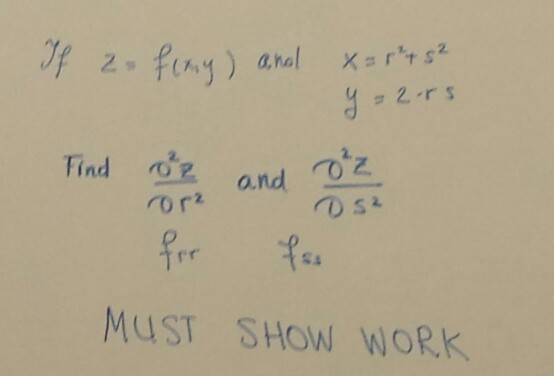 If z = f(x,y) and x = r² + s²
y = 2·rs
Find ∂²z/∂r² and ∂²z/∂s²
frr fss
MUST SHOW WORK